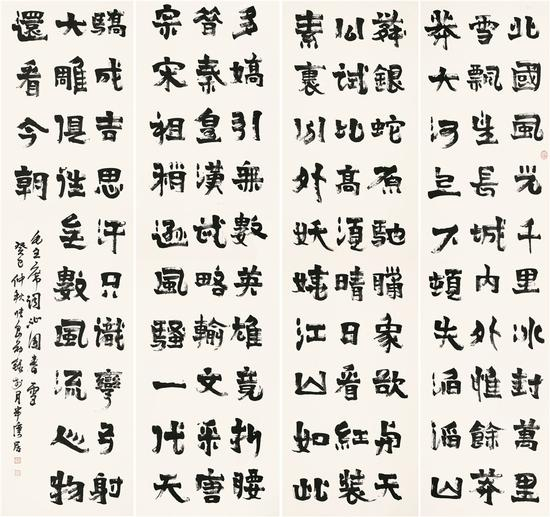 北國風光千里冰封萬里
雪飄望長城內外惟餘莽
莽大河上下頓失滔滔山
舞銀蛇原馳臘象欲與天
公試比高須晴日看紅裝
素裹分外妖嬈江山如此
多嬌引無數英雄競折腰
惜秦皇漢武略輸文采唐
宗宋祖稍遜風騷一代天
驕成吉思汗只識彎弓射
大雕俱往矣數風流人物
還看今朝
毛主席詞沁園春雪
癸巳仲秋